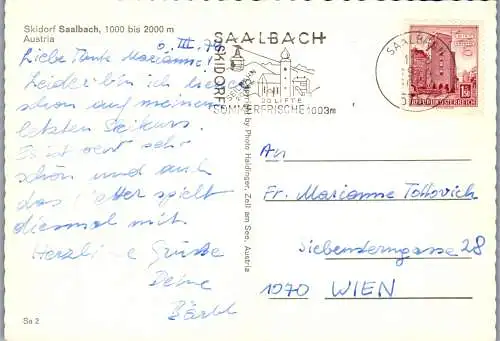 Skidorf Saalbach, 1000 bis 2000 m
Austria
Liebe Tante Marianne!
Leider bin ich heuer
schon auf meinem
letzten Skikurs.
Es ist sehr
schön und auch
das Wetter spielt
diesmal mit.
Herzliche Grüsse
Deine
Bärbl
Sa 2
SAALBACH
SKIDORF
20 LIFTE
SOMMERFRISCHE 1003m
by Photo Haidinger, Zell am See, Austria
SAALBACH
REPUBLIK ÖSTERREICH
An
Fr. Marianne Tottovich
Siebensterngasse 28
1070 WIEN